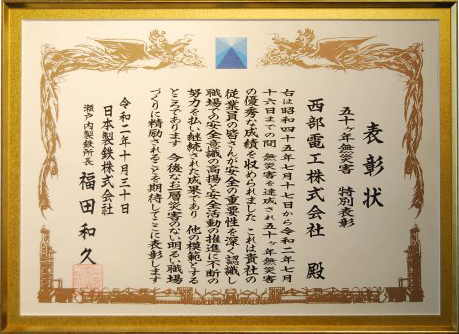 表彰状
五十ヶ年無災害 特別表彰
西部電工株式会社 殿
右は昭和四十五年七月十七日から令和二年七月
十六日までの間 無災害を達成され五十ヶ年無災害
の優秀な成績を収められました これは貴社の
従業員の皆さんが安全の重要性を深く認識し
職場での安全意識の高揚と安全活動の推進に不断の
努力を払い継続された成果であり 他の模範とする
ところであります 今後なお一層災害のない明るい職場
づくりに精励されることを期待してここに表彰します
令和二年十月三十日
日本製鉄株式会社
瀬戸内製鉄所長 福田和久